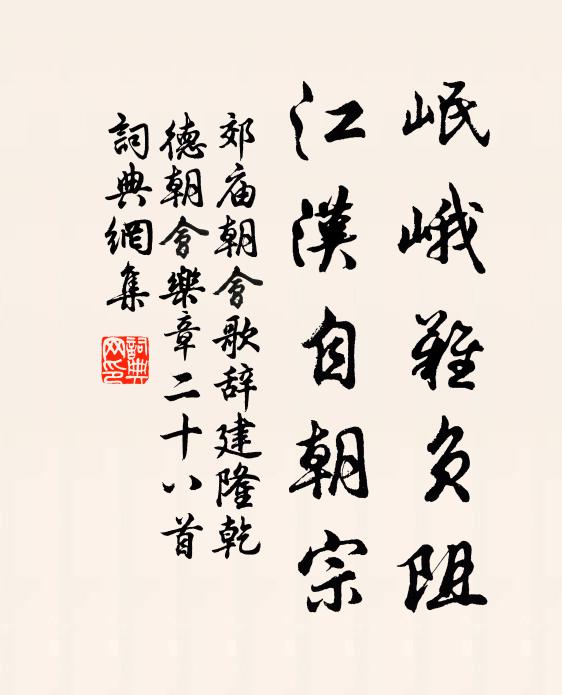 岷峨難負阻
江漢自朝宗
郊庙朝會歌辞建隆乾
德朝會樂章二十八首
詞典網集
詞典
网印